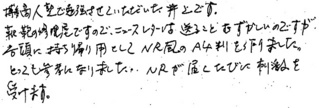 博商人塾で勉強させていただいた井上です。
靴・鞄の修理屋ですので、ニュースレターは送ることむずかしいのですが、
店頭に持ち帰り用としてNL風のA4判を作りました。
とっても参考になりました。NLが届くたびに刺激を
受けます。